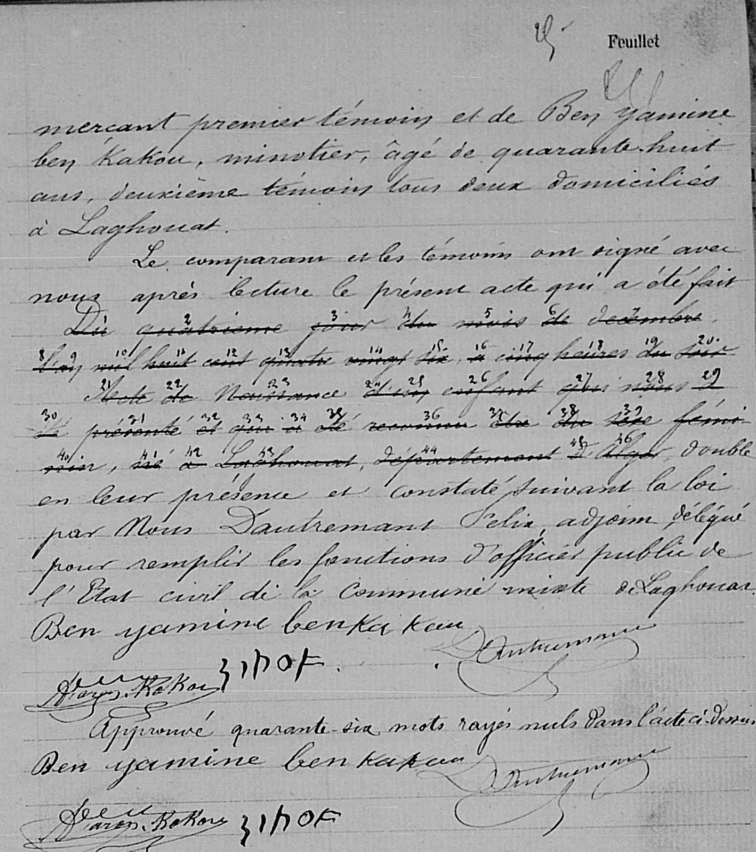 25
Feuillet
merçant premier témoin et de Ben yamine
ben Kakou, minotier, âgé de quarante-huit
ans, deuxième témoin tous deux domiciliés
à Laghouat.
Le comparant et les témoins ont signé avec
nous après lecture le présent acte qui a été fait
Du quatrième jour du mois de décembre
l'an mil huit cent quatre vingt six, à cinq heures du soir
Acte de Naissance d'un enfant qui nous a
été présenté et qui a été reconnu être du sexe fémi
nin, né à Laghouat, département d'Alger, double
en leur présence et constaté suivant la loi
par Nous Dautremant Felix, adjoint délégué
pour remplir les fonctions d'officier public de
l'Etat civil de la Commune mixte de Laghouat.
Ben yamine ben Ka Kou
Dautremant
Aaron Kakou
Approuvé quarante-six mots rayés nuls dans l'acte ci-dessus
Ben yamine ben Kakou
Dautremant
Aaron Kakou